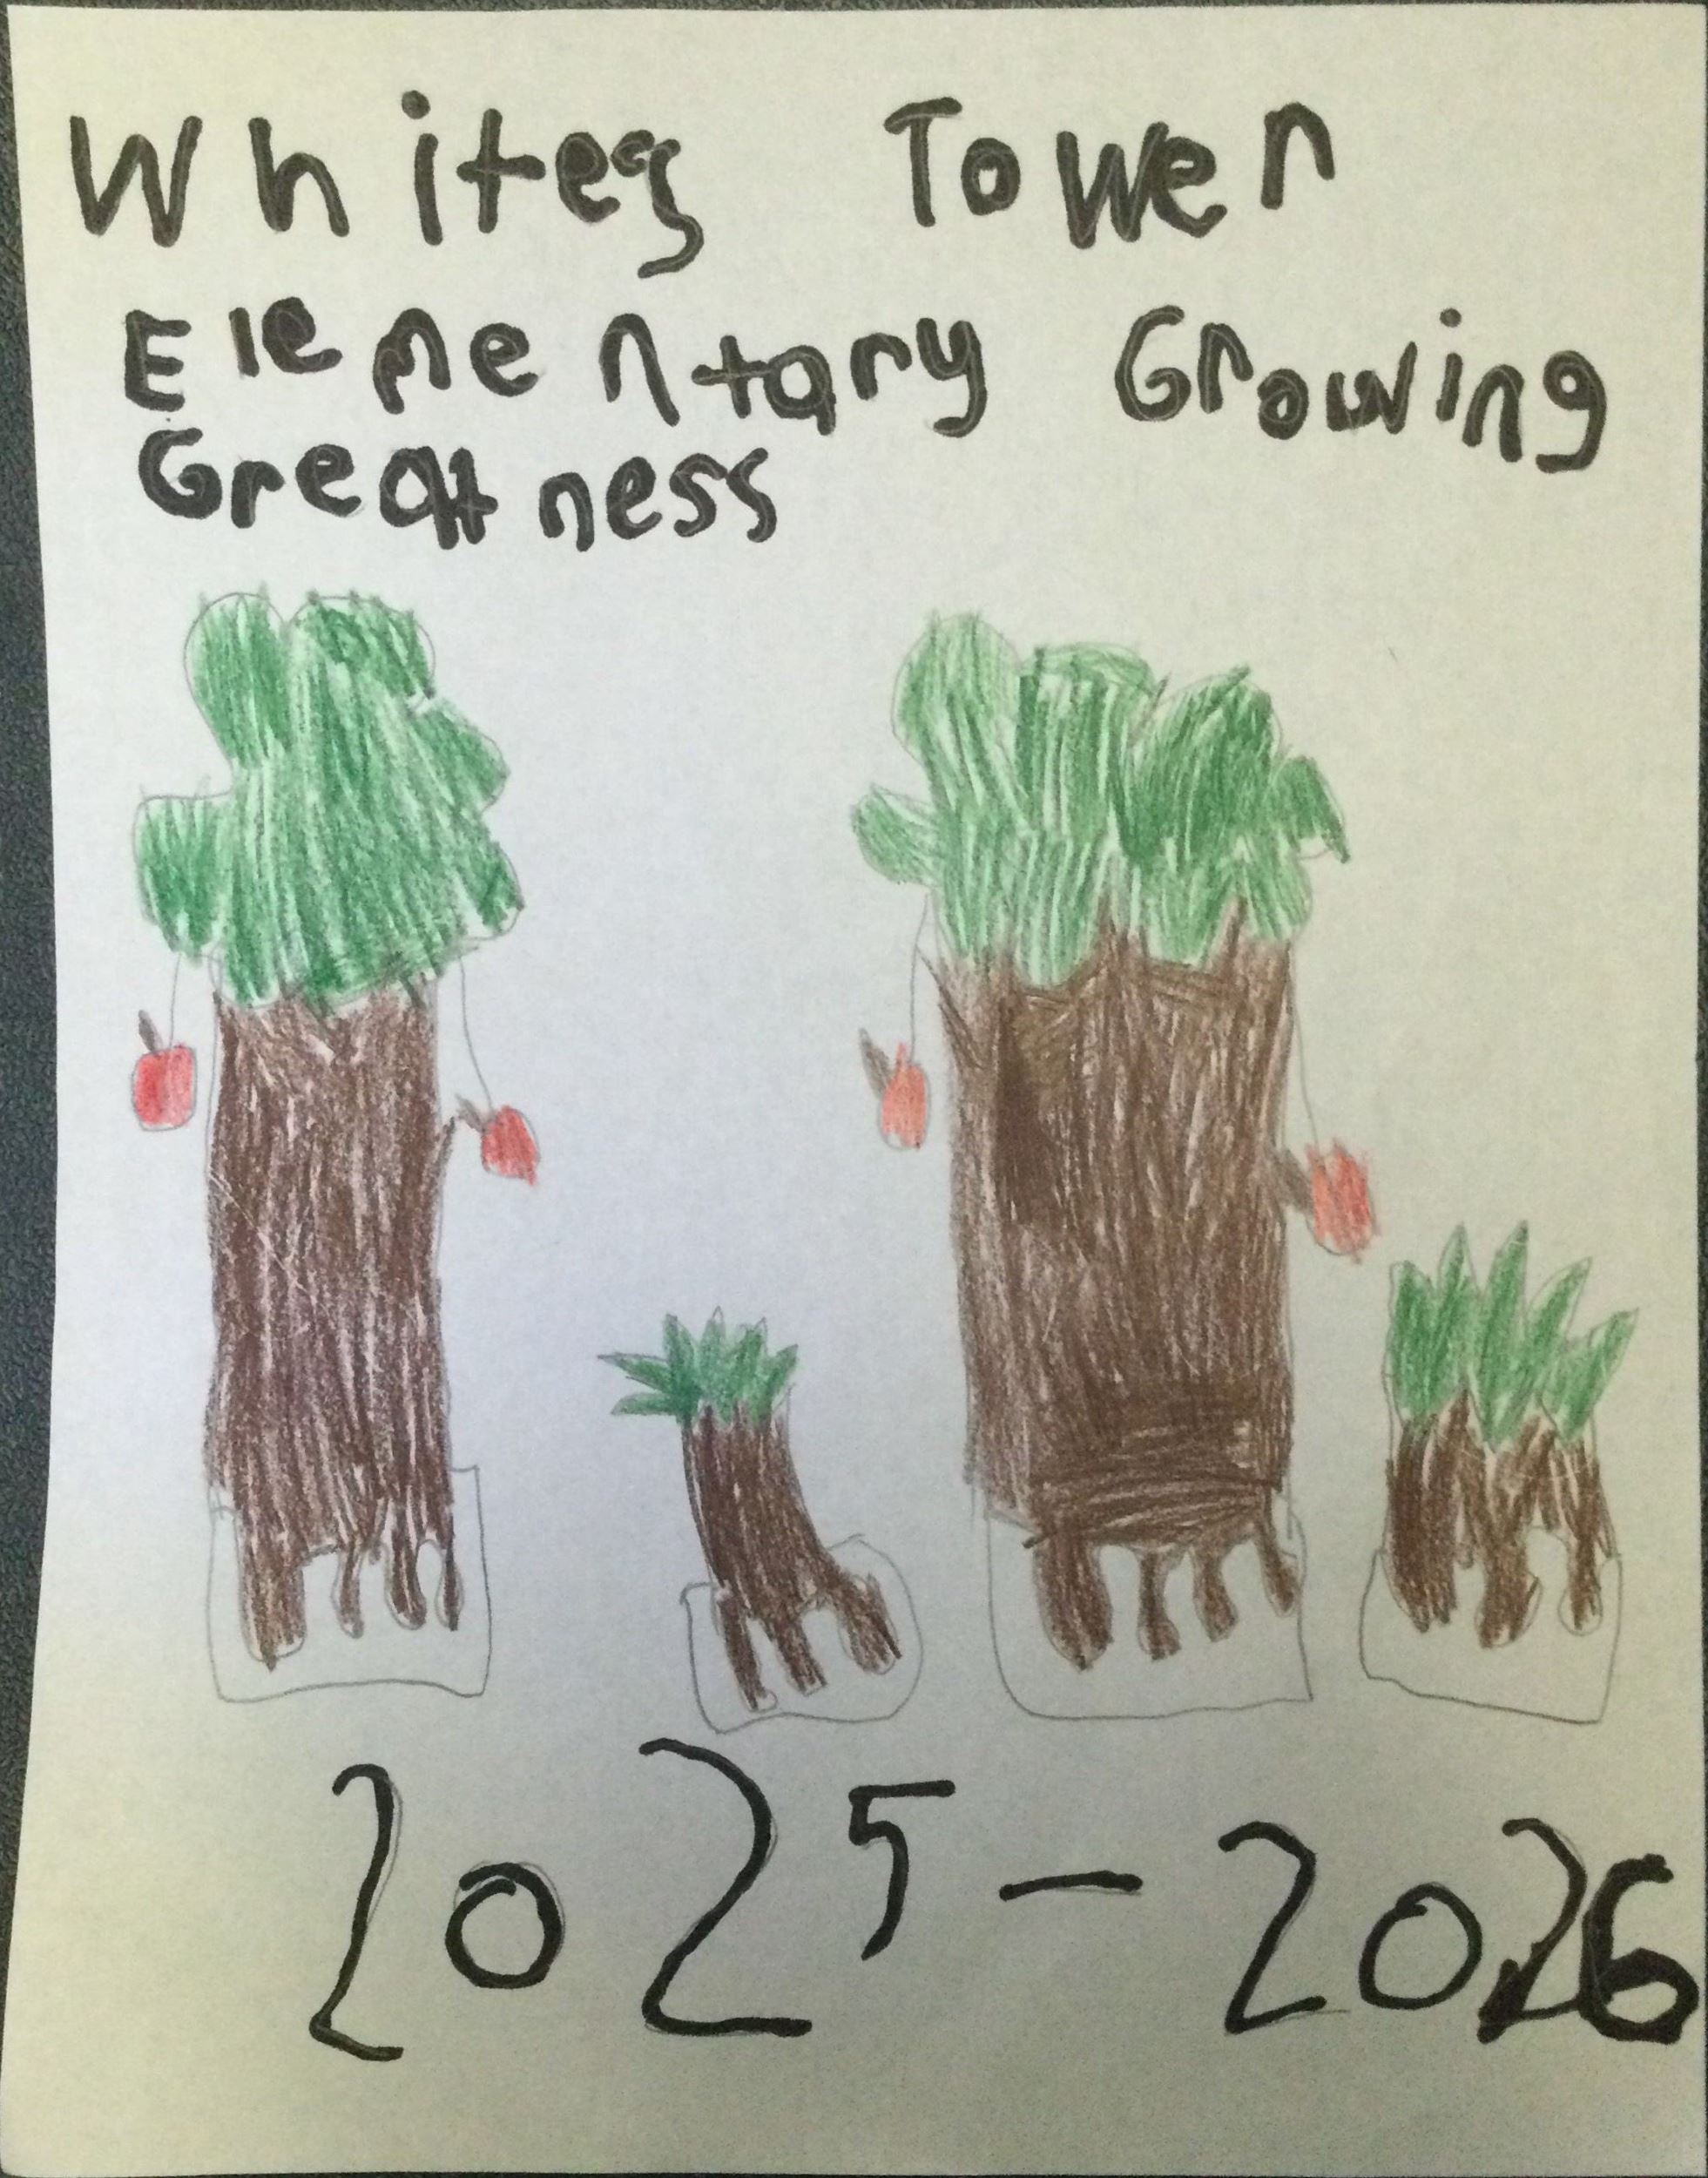 Whites Tower
Elementary Growing
Greatness
2025-2026